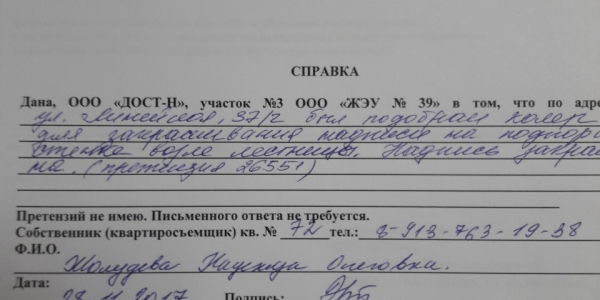 СПРАВКА
Дана, ООО «ДОСТ-Н», участок №3 ООО «ЖЭУ № 39» в том, что по адре
ул. Линейная, 37/2 был подобран колер
для закрашивания надписи на подпор
стенке возле лестницы. Надпись закра
на. (претензия 26551)
Претензий не имею. Письменного ответа не требуется.
Собственник (квартиросъемщик) кв. № 72 тел.: 8-913-763-19-38
Ф.И.О.
Жолудева Надежда Олеговна.
Дата: 28.11.2017 Подпись: